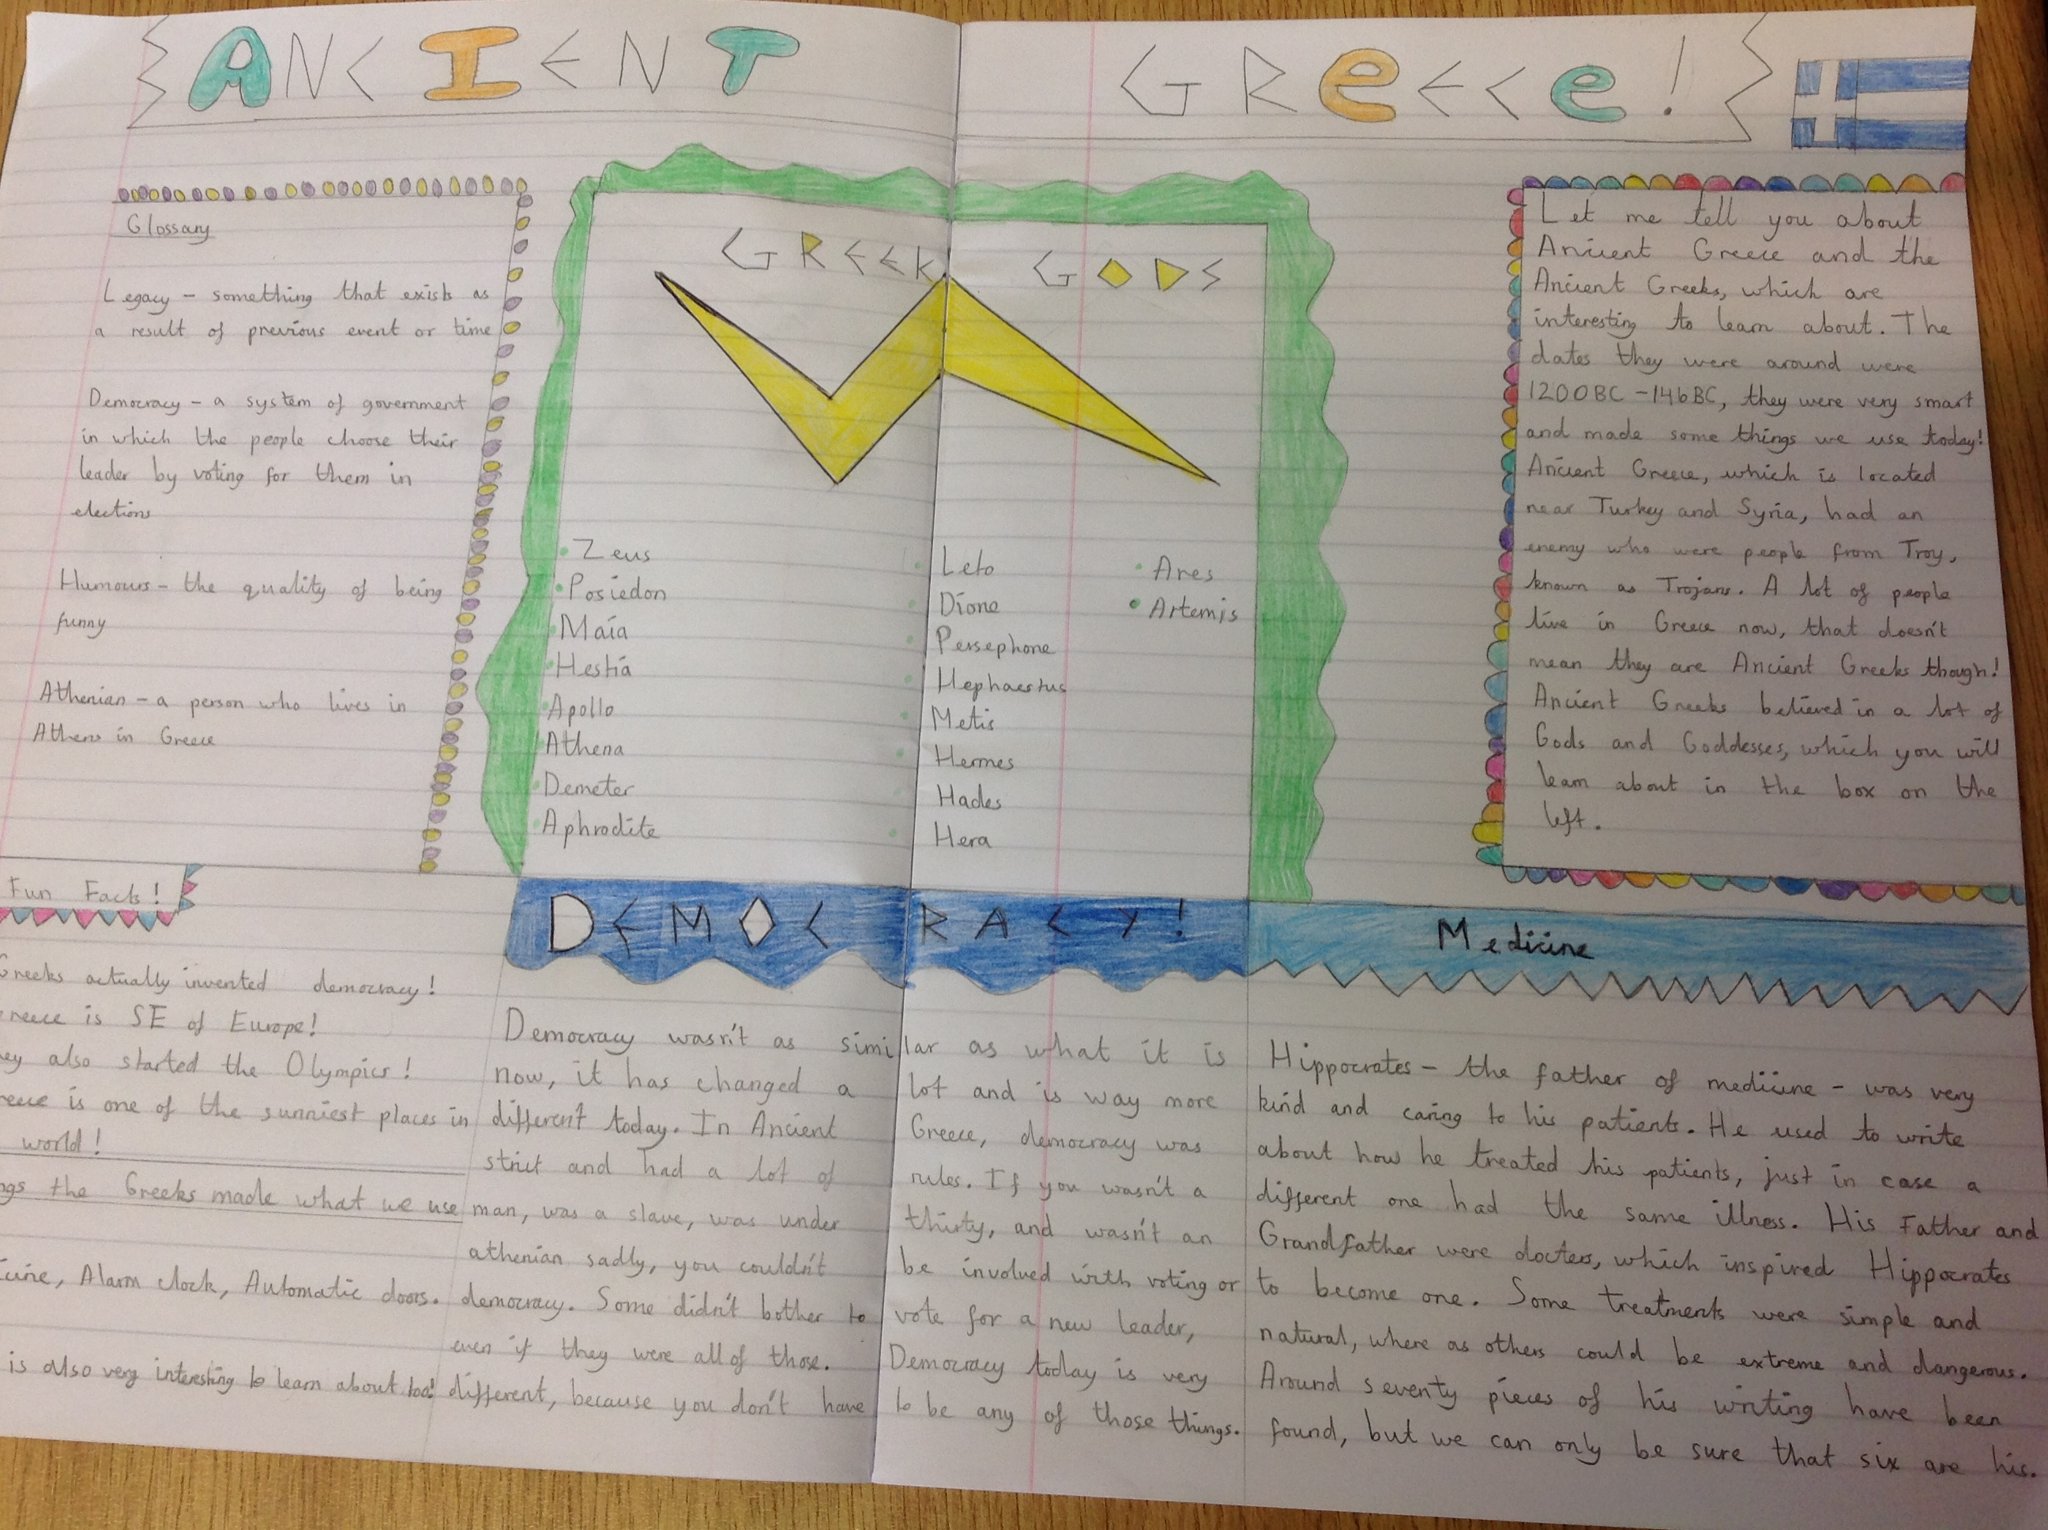 ANCIENT GREECE!
Glossary
Legacy - something that exists as
a result of previous event or time
Democracy - a system of government
in which the people choose their
leader by voting for them in
elections
Humours - the quality of being
funny
Athenian - a person who lives in
Athens in Greece
GREEK GODS
Zeus
Posiedon
Maia
Hestia
Apollo
Athena
Demeter
Aphrodite
Leto
Dione
Persephone
Hephaestus
Metis
Hermes
Hades
Hera
Ares
Artemis
Let me tell you about
Ancient Greece and the
Ancient Greeks, which are
interesting to learn about. The
dates they were around were
1200BC - 146BC, they were very smart
and made some things we use today!
Ancient Greece, which is located
near Turkey and Syria, had an
enemy who were people from Troy,
known as Trojans. A lot of people
live in Greece now, that doesn't
mean they are Ancient Greeks though!
Ancient Greeks believed in a lot of
Gods and Goddesses, which you will
learn about in the box on the
left.
Fun Facts!
Greeks actually invented democracy!
reece is SE of Europe!
ey also started the Olympics!
reece is one of the sunniest places in
world!
ngs the Greeks made what we use
cine, Alarm clock, Automatic doors.
is also very interesting to learn about too!
DEMOCRACY!
Democracy wasn't as similar as what it is
now, it has changed a lot and is way more
different today. In Ancient Greece, democracy was
strict and had a lot of rules. If you wasn't a
man, was a slave, was under thirty, and wasn't an
athenian sadly, you couldn't be involved with voting or
democracy. Some didn't bother to vote for a new leader,
even if they were all of those. Democracy today is very
different, because you don't have to be any of those things.
Medicine
Hippocrates - the father of medicine - was very
kind and caring to his patients. He used to write
about how he treated his patients, just in case a
different one had the same illness. His Father and
Grandfather were docters, which inspired Hippocrates
to become one. Some treatments were simple and
natural, where as others could be extreme and dangerous.
Around seventy pieces of his writing have been
found, but we can only be sure that six are his.